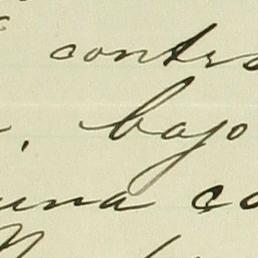 contra
, bajo
una co